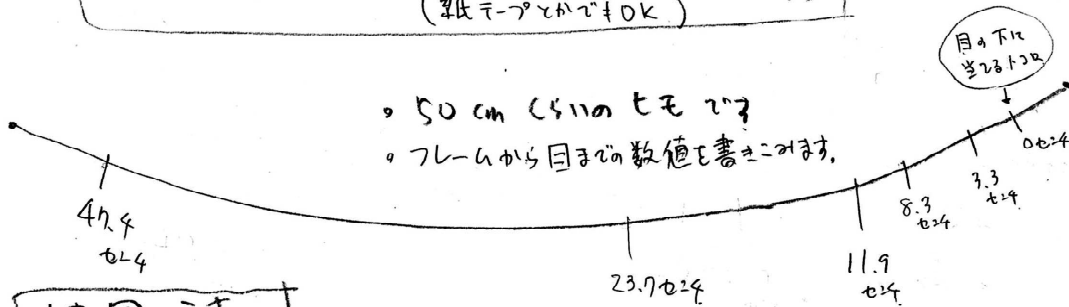 (紙テープとかでもOK)
目の下に
当てるトコロ
。50cmくらいのヒモです
。フレームから目までの数値を書きこみます。
0センチ
3.3
センチ
8.3
センチ
11.9
センチ
23.7センチ
47.4
センチ